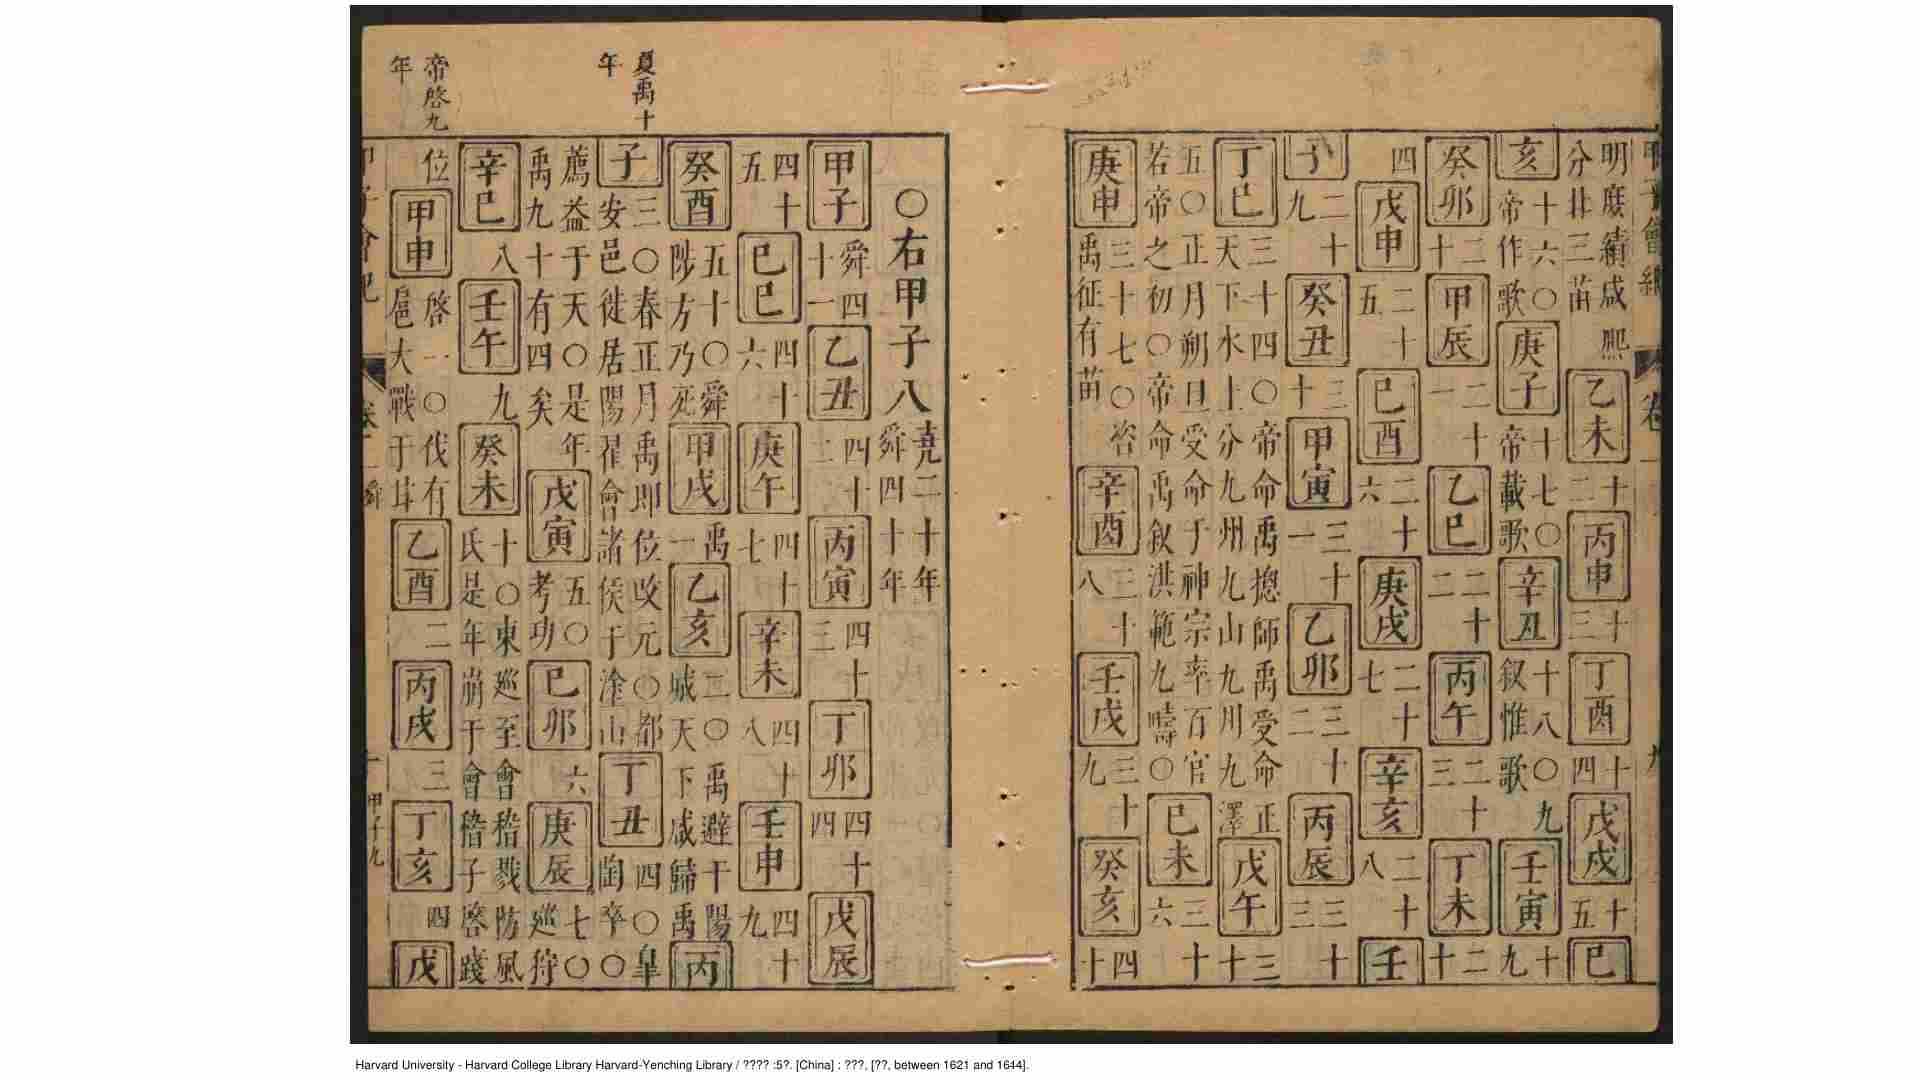 甲子會紀 卷一 九
明庶績咸熙分北三苗乙未十二丙申十三丁酉十四戊戌十五己
亥十六〇帝作歌庚子十七〇帝載歌辛丑十八〇九叙惟歌壬寅十九
癸卯二十甲辰二十一乙巳二十二丙午二十三丁未二十
四戊申二十五己酉二十六庚戌二十七辛亥二十八壬
子二十九癸丑三十甲寅三十一乙卯三十二丙辰三十三
丁巳三十四〇帝命禹摠師禹受命正天下水土分九州九山九川九澤戊午三十
五〇正月朔旦受命于神宗率百官若帝之初〇帝命禹叙洪範九疇〇己未三十六
庚申三十七〇咨禹征有苗辛酉三十八壬戌三十九癸亥四十
〇右甲子八堯二十年舜四十年
甲子舜四十一乙丑四十二丙寅四十三丁卯四十四戊辰
四十五己巳四十六庚午四十七辛未四十八壬申四十九
癸酉五十〇舜陟方乃死甲戌禹一乙亥二〇禹避于陽城天下咸歸禹丙
子三〇春正月禹即位改元〇都安邑徙居陽翟會諸侯于塗山丁丑四〇皐陶卒〇
薦益于天〇是年禹九十有四矣戊寅五〇考功己卯六庚辰七〇巡狩
辛巳八壬午九癸未十〇東巡至會稽戮防風氏是年崩于會稽子啓踐
位甲申啓一〇伐有扈大戰于甘乙酉二丙戌三丁亥四戊
夏禹十年
帝啓九年
甲子會紀 卷一 舜 十 甲子九